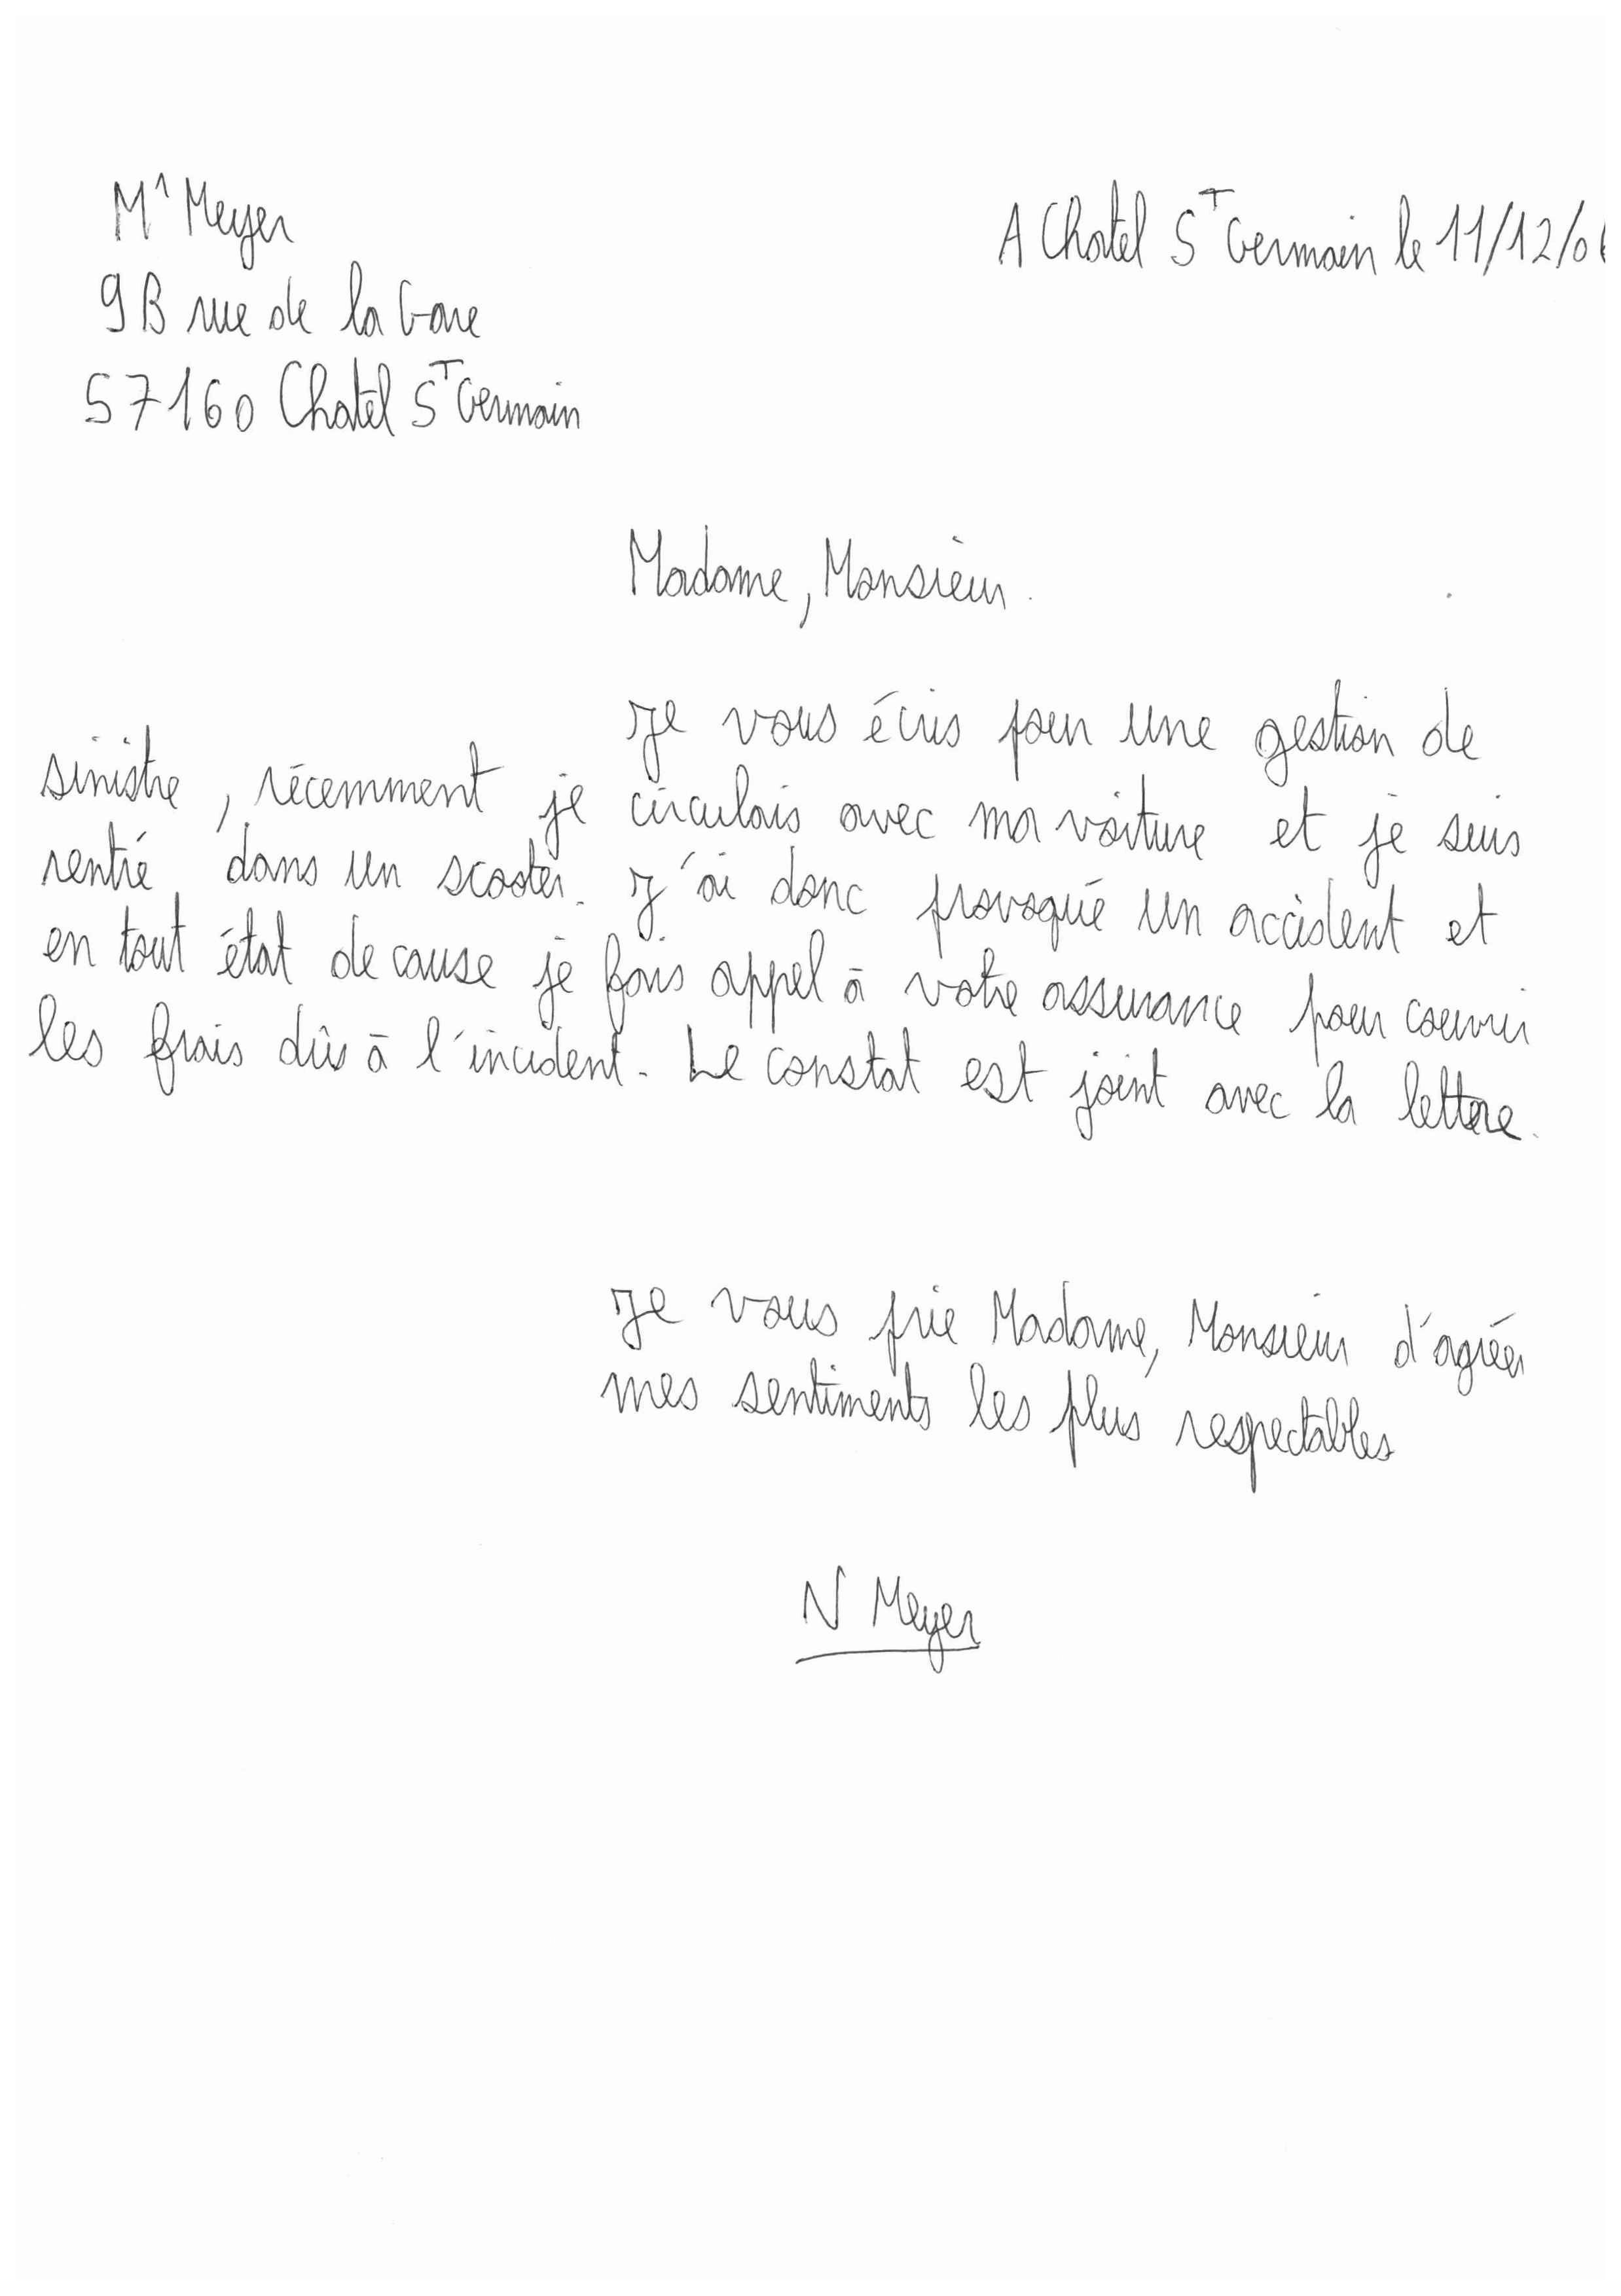 Mr Meyer
A Chatel ST Germain le 11/12/06
9B rue de la Gare
57160 Chatel ST Germain
Madame, Monsieur.
Je vous écris pour une gestion de
sinistre, récemment je circulais avec ma voiture et je suis
rentré dans un scooter. J'ai donc provoqué un accident et
en tout état de cause je fais appel à votre assurance pour couvrir
les frais dûs à l'incident. Le constat est joint avec la lettre.
Je vous prie Madame, Monsieur d'agréer
mes sentiments les plus respectables
N Meyer